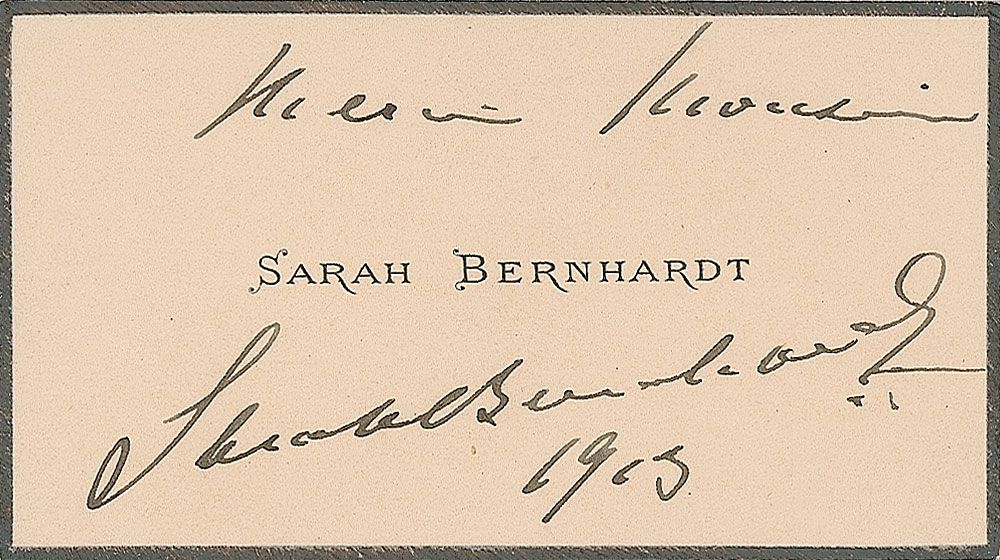 Merci Monsieur
SARAH BERNHARDT
Sarah Bernhardt
1913